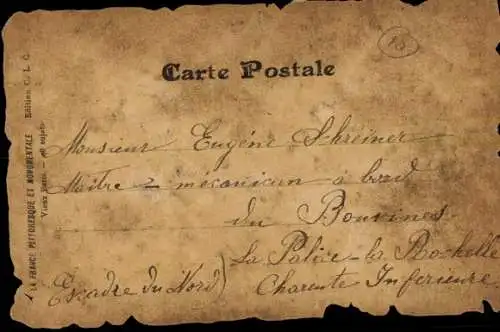 Carte Postale
13
Monsieur Eugène Schreiner
Maître 2 mécanicien à bord
du Bouvines
La Palice - la Rochelle
(Escadre du Nord) Charente Inferieure
LA FRANCE PITTORESQUE ET MONUMENTALE Edition C. L. C.